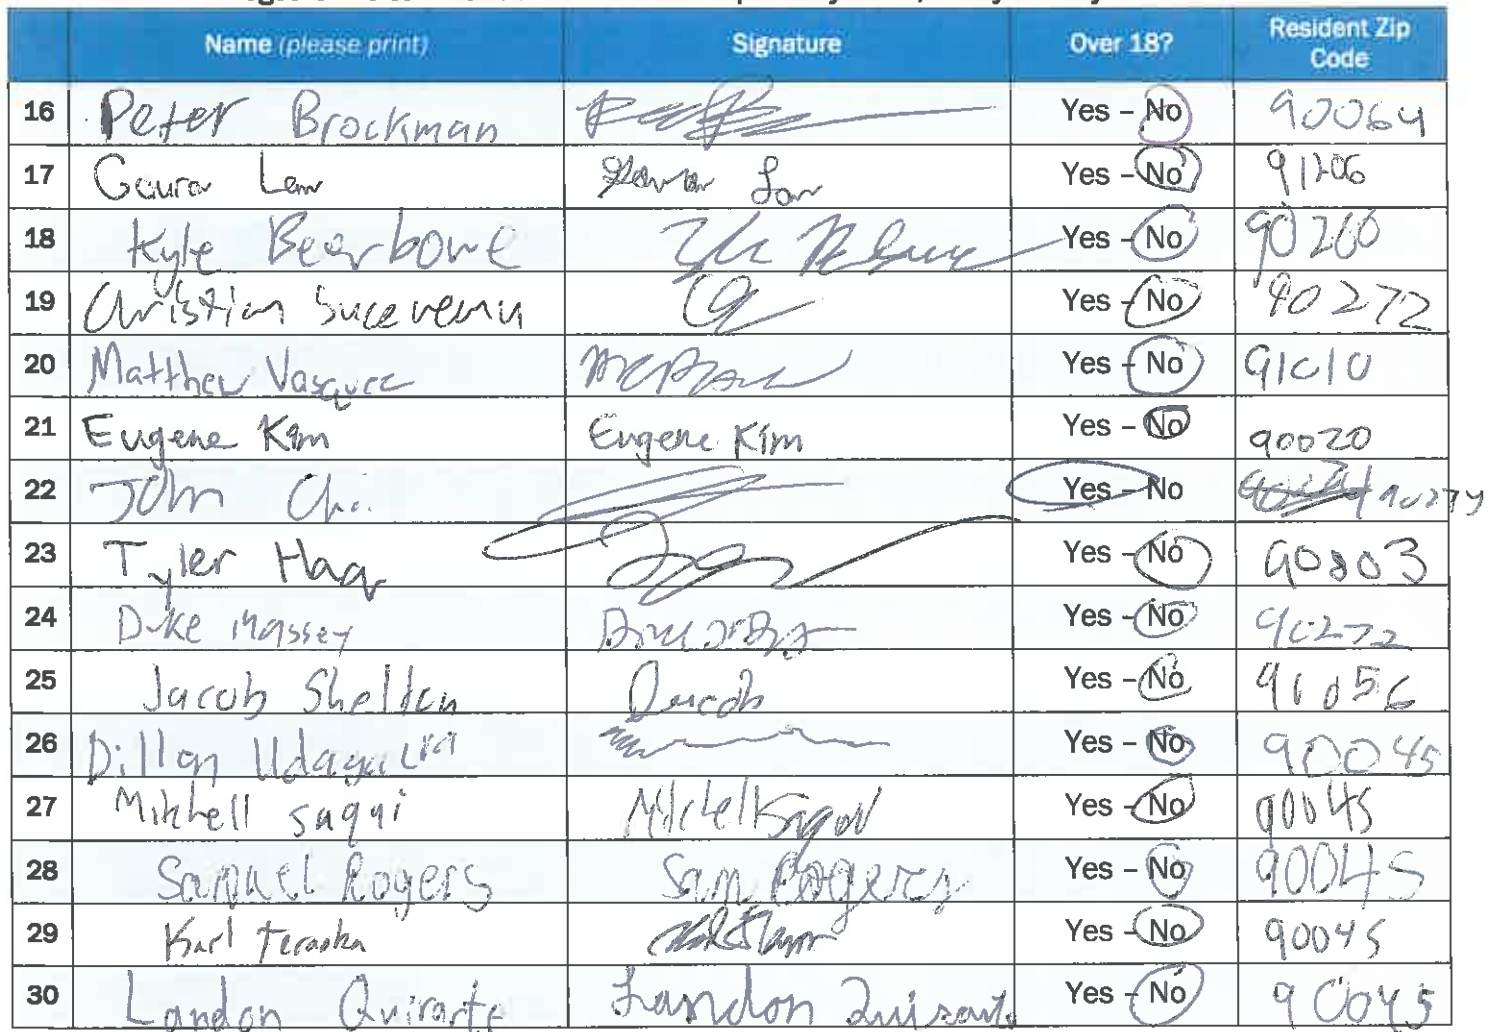 Name (please print) Signature Over 18? Resident Zip Code
16 Peter Brockman Yes – No 90064
17 Yes – No 91206
18 Kyle Beerbower Yes – No 90260
19 Christian Suceveanu Yes – No 90272
20 Matthew Vasquez Yes – No 91010
21 Eugene Kim Eugene Kim Yes – No 90020
22 John Yes – No 90274
23 Tyler Haq Yes – No 90803
24 Duke Massey Yes – No 90272
25 Jacob Shelton Jacob Yes – No 91056
26 Dillon Yes – No 90045
27 Mitchell saqqi Yes – No 90045
28 Samuel Rogers Sam Rogers Yes – No 90045
29 Karl Teraoka Yes – No 90045
30 Landon Quirarte Landon Quirarte Yes – No 90045